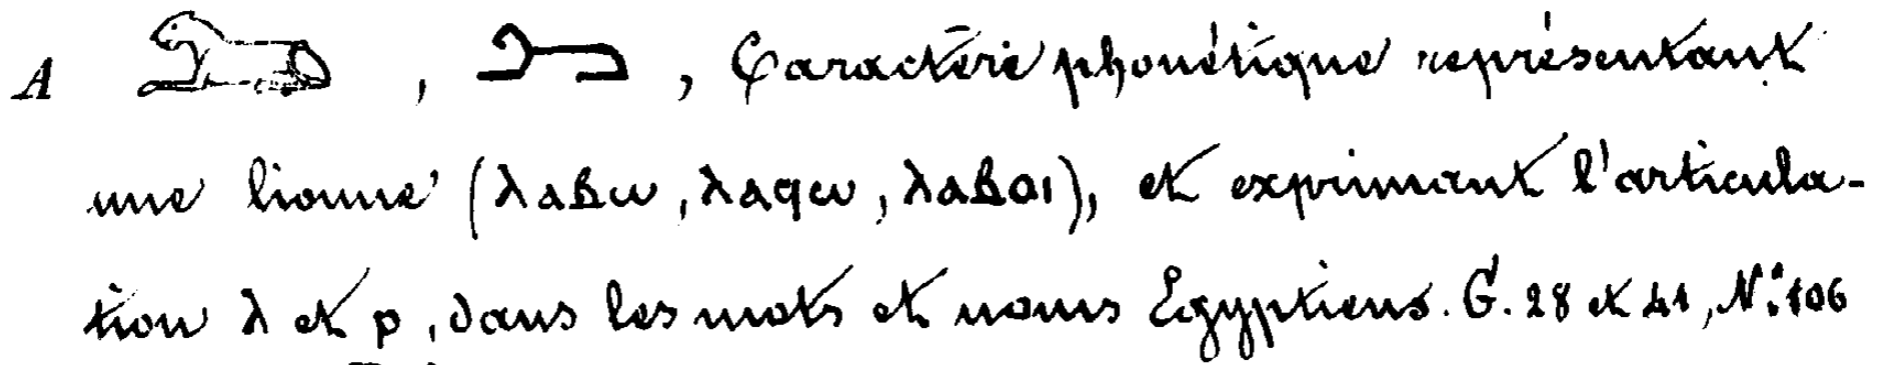 A 𓃭 , , Caractère phonétique représentant
une lionne (ⲗⲁⲃⲱ, ⲗⲁϥⲱ, ⲗⲁⲃⲟⲓ), et exprimant l'articula-
tion ⲗ et ⲣ, dans les mots et noms Egyptiens. G. 28 et 41, N.° 106